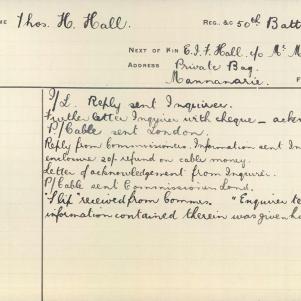 ME Thos. H. Hall. REG. &c 50th Batt
NEXT OF KIN E.I.F. Hall. c/o Mr M
ADDRESS Private Bag.
Mannanarie. F
I/L. Reply sent Inquirer.
Further letter Inquirer with cheque – ackn
P/Cable sent London.
Reply from Commissioners. Information sent In
enclosure 20/ refund on cable money.
Letter of acknowledgement from Inquirer.
P/Cable sent Commissioner Lond.
"Slip" received from Commrs. "Enquirer te
information contained therein was given h